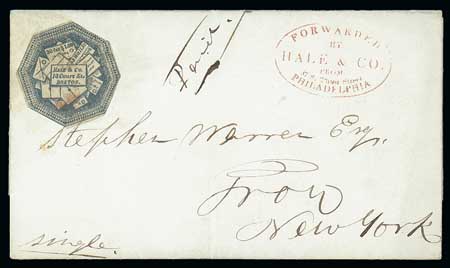 Hale & Co.
13 Court St.
BOSTON.
Paid.
FORWARDED
BY
HALE & CO.
FROM
Street
PHILADELPHIA
Stephen Warren Esq.
Troy
New York
single